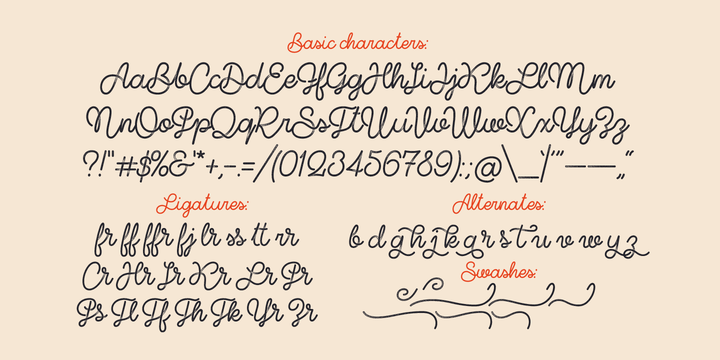 Basic characters:
AaBbCcDdEeFfGgHhIiJjKkLlMm
NnOoPpQqRrSsTtUuVvWwXxYyZz
?!"#$%&'*+,-.=/(0123456789):;@\_|'"–—„“
Ligatures:
fr ff ffr fj lr ss tt rr
Cr Hr Ir Kr Lr Pr
Ps Tl Tf Th Tk Yr Zr
Alternates:
b d g h j k q r s t u v w y z
Swashes: